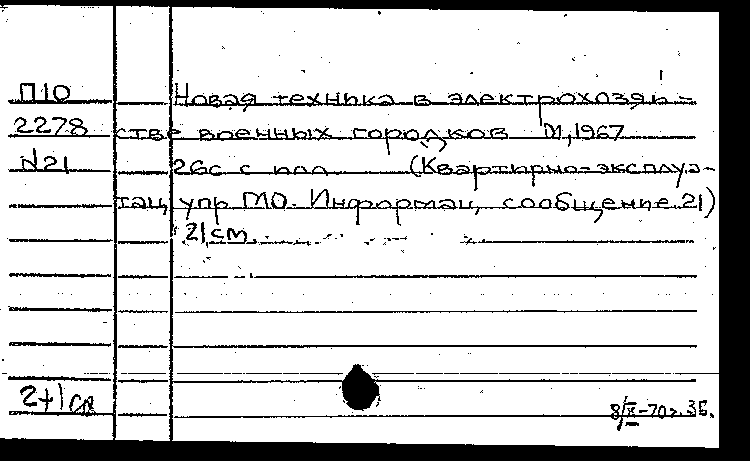 П10 Новая техника в электрохозяй-
2278 стве военных городков М,1967
№21 26с с илл (Квартирно-эксплуа-
тац упр МО. Информац, сообщение 21)
21 cm
2+1
8/X-70г. ЗБ.